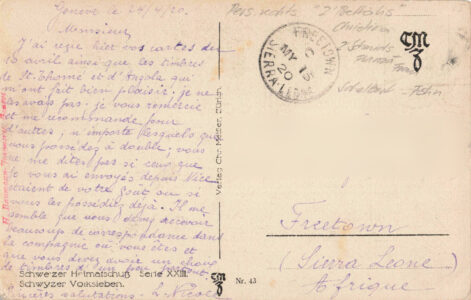 Genève le 24/4/20.
Monsieur
J'ai reçu hier vos cartes du
10 avril ainsi que les timbres
de St. Thomé et d'Angola qui
m'ont fait bien plaisir. je ne
les avais pas. je vous remercie
et me recommande pour
d'autres; n'importe lesquels que
vous possédez à double; vous
ne me dites pas si ceux que
je vous ai envoyés depuis Nice
étaient de votre goût ou si
vous les possédiez déjà. Il me
semble que vous devez recevoir
beaucoup de correspondance dans
la compagnie où vous êtes et
que vous devez avoir un choix
de timbres d'un peu partout.
salutations.
Schweizer Heimatschutz Serie XXIII.
Schwyzer Volksleben.
Verlag Chr. Meisser, Zürich
CMZ
Nr. 43
FREETOWN
C
MY 15
20
SIERRA LEONE
CMZ
Freetown
(Sierra Leone)
Afrique